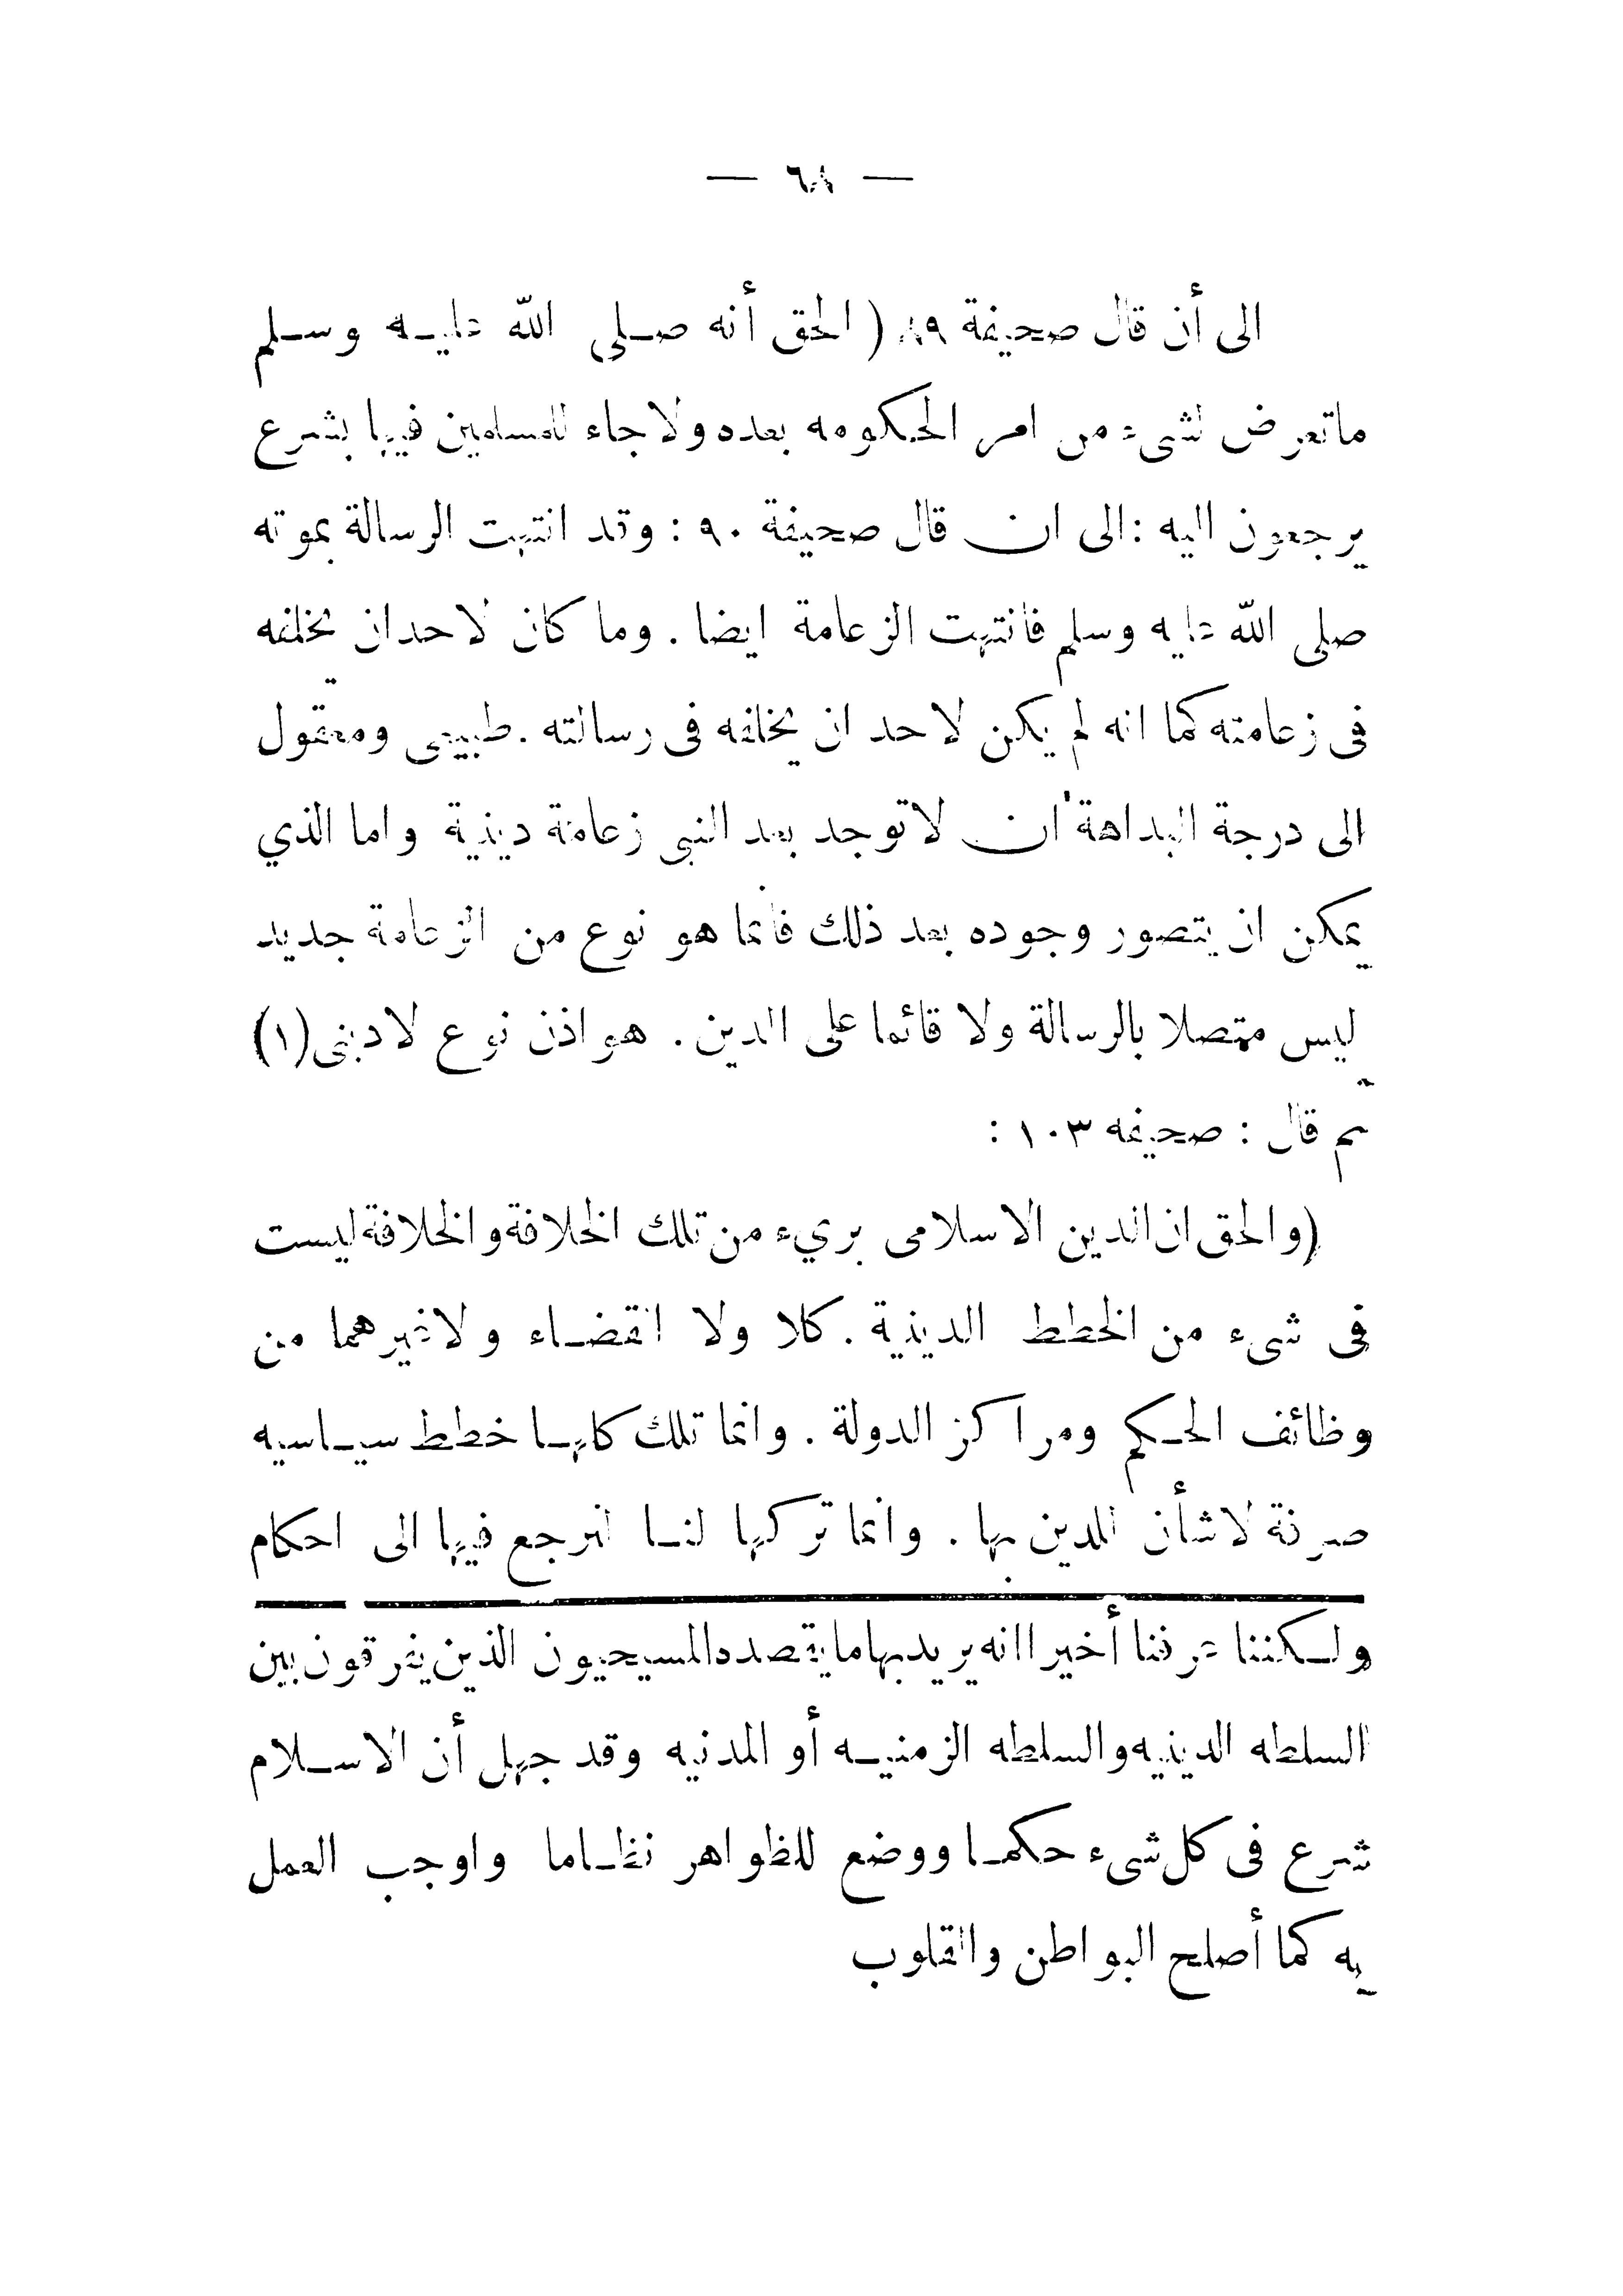 — ٦٨ —
الى أن قال صحيفة ٨٩ ( الحق أنه صلى الله عليه وسلم
ماتعرض لشىء من امر الحكومه بعده ولا جاء للمسلمين فيها بشرع
يرجعون اليه : الى ان قال صحيفة ٩٠ : وقد انتهت الرسالة بموته
صلى الله عليه وسلم فانتهت الزعامة ايضا . وما كان لاحد ان يخلفه
فى زعامته كما انه لم يكن لاحد ان يخلفه فى رسالته . طبيعى ومعقول
الى درجة البداهة ان لا توجد بعد النبى زعامة دينية واما الذي
يمكن ان يتصور وجوده بعد ذلك فانما هو نوع من الزعامة جديد
ليس متصلا بالرسالة ولا قائما على الدين . هو اذن نوع لا دينى (١)
ثم قال : صحيفه ١٠٣ :
(والحق ان الدين الاسلامى بريء من تلك الخلافة والخلافة ليست
فى شىء من الخطط الدينية . كلا ولا القضاء ولا غيرهما من
وظائف الحكم ومراكز الدولة . وانما تلك كلها خطط سياسيه
صرفة لا شأن للدين بها . وانما تركها لنا لنرجع فيها الى احكام
ولكننا عرفنا أخيرا انه يريد بها ما يقصده المسيحيون الذين يفرقون بين
السلطه الدينيه والسلطه الزمنيه أو المدنيه وقد جهل أن الاسلام
شرع فى كل شىء حكما ووضع للظواهر نظاما واوجب العمل
به كما أصلح البواطن والقلوب